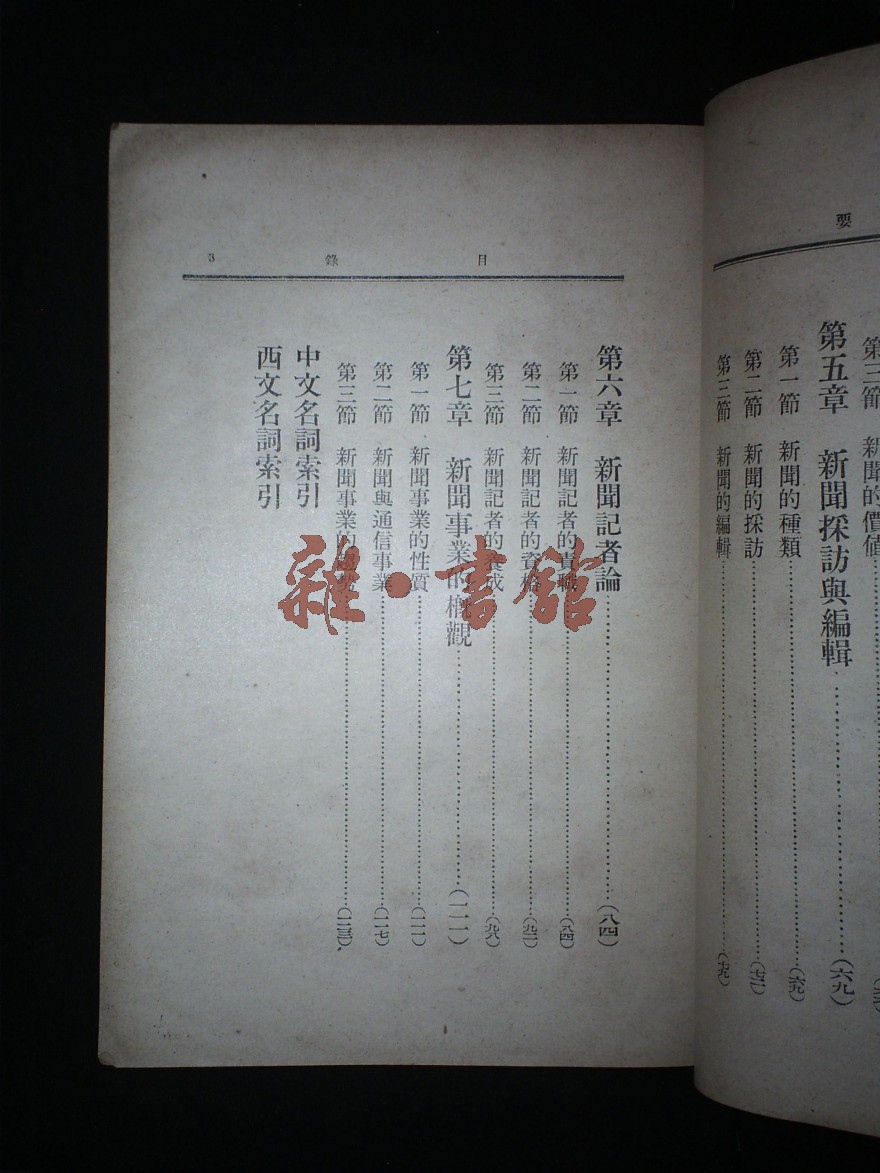 要
第三節 新聞的價值
第五章 新聞採訪與編輯(六九)
第一節 新聞的種類(六九)
第二節 新聞的採訪(七二)
第三節 新聞的編輯(七九)
目錄 3
第六章 新聞記者論(八四)
第一節 新聞記者的責職(八四)
第二節 新聞記者的資格(九二)
第三節 新聞記者的養成(九八)
第七章 新聞事業的概觀(一一一)
第一節 新聞事業的性質(一一一)
第二節 新聞與通信事業(一一七)
第三節 新聞事業的趨勢
中文名詞索引
西文名詞索引
雜·書館